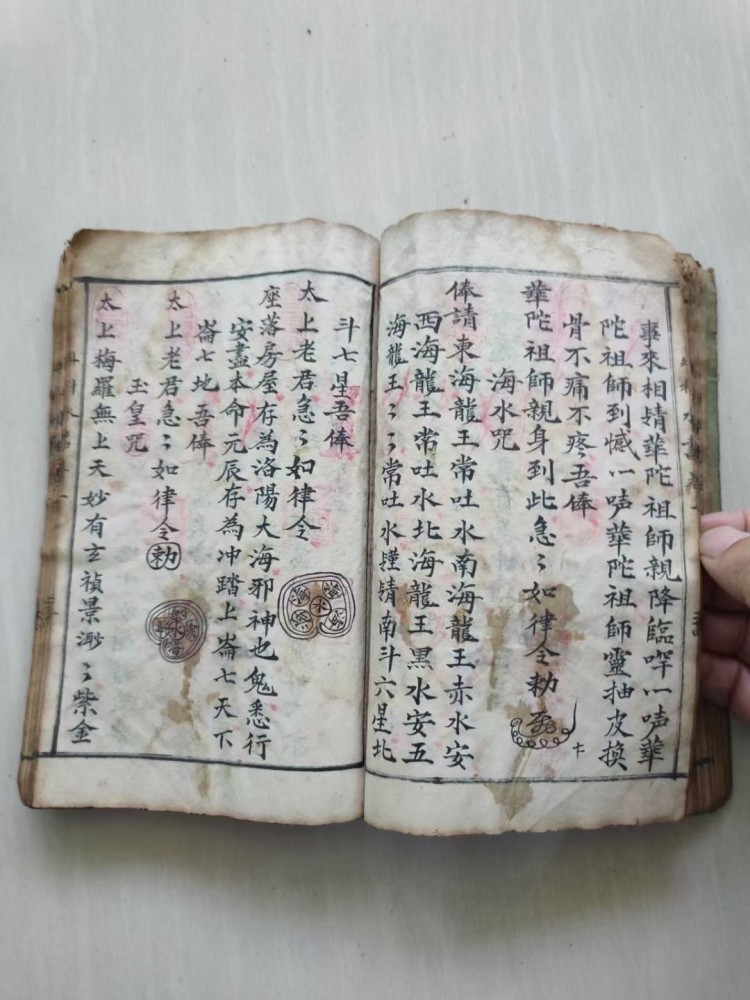 事來相婧華陀祖師親降臨哔一吽華
陀祖師到憾一吽華陀祖師靈抽皮換
骨不痛不疼吾俸
華陀祖師親身到此急〻如律令勅
海水咒
俸請東海龍王常吐水南海龍王赤水安
西海龍王常吐水北海龍王黒水安五
海龍王〻〻常吐水南斗六星北
斗七星吾俸
太上老君急〻如律令
座落房屋存為洛陽大海邪神也鬼悉行
安盡本命元辰存為冲踏上崙七天下
崙七地吾俸
太上老君急〻如律令勅
玉皇咒
太上梅羅無上天妙有玄禎景渺〻紫金